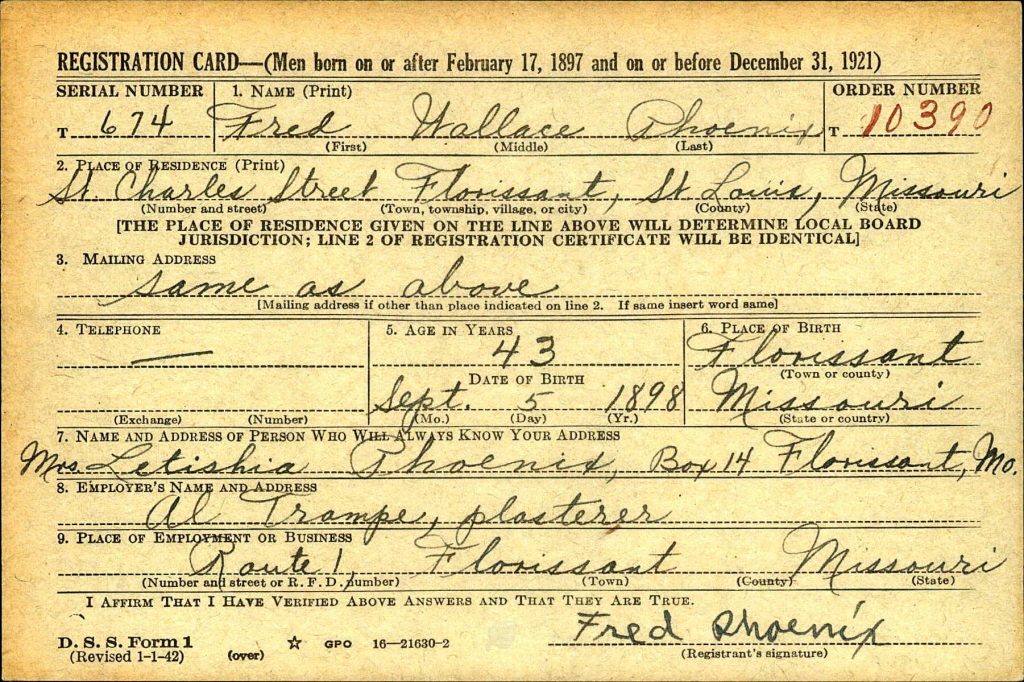 REGISTRATION CARD—(Men born on or after February 17, 1897 and on or before December 31, 1921)
SERIAL NUMBER 1. NAME (Print) ORDER NUMBER
T 674 Fred Wallace Phoenix T 10390
(First) (Middle) (Last)
2. PLACE OF RESIDENCE (Print)
St. Charles Street Florissant, St Louis, Missouri
(Number and street) (Town, township, village, or city) (County) (State)
[THE PLACE OF RESIDENCE GIVEN ON THE LINE ABOVE WILL DETERMINE LOCAL BOARD
JURISDICTION; LINE 2 OF REGISTRATION CERTIFICATE WILL BE IDENTICAL]
3. MAILING ADDRESS
same as above
[Mailing address if other than place indicated on line 2. If same insert word same]
4. TELEPHONE 5. AGE IN YEARS 6. PLACE OF BIRTH
— 43 Florissant
(Town or county)
DATE OF BIRTH
Sept. 5 1898 Missouri
(Exchange) (Number) (Mo.) (Day) (Yr.) (State or country)
7. NAME AND ADDRESS OF PERSON WHO WILL ALWAYS KNOW YOUR ADDRESS
Mrs. Letishia Phoenix, Box 14 Florissant, Mo.
8. EMPLOYER'S NAME AND ADDRESS
Al Trampe, plasterer
9. PLACE OF EMPLOYMENT OR BUSINESS
Route 1, Florissant Missouri
(Number and street or R. F. D. number) (Town) (County) (State)
I AFFIRM THAT I HAVE VERIFIED ABOVE ANSWERS AND THAT THEY ARE TRUE.
Fred Phoenix
D. S. S. Form 1
(Revised 1-1-42) (over) ☆ GPO 16—21630-2 (Registrant's signature)